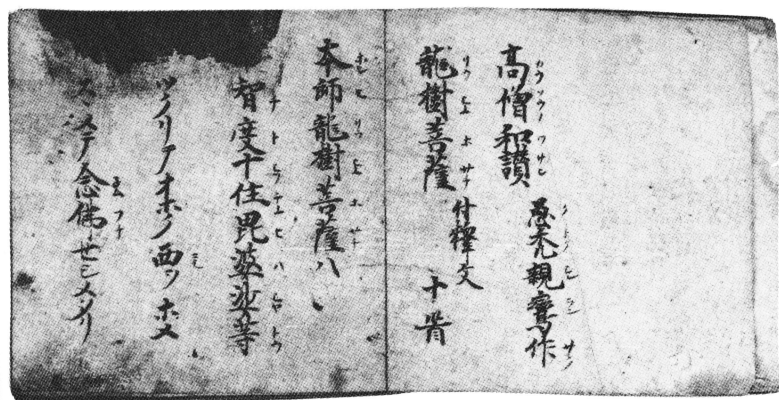 高僧和讃
愚禿親鸞作
龍樹菩薩 付釋文 十首
本師龍樹菩薩ハ
智度十住毘婆沙等
ツクリテオホク西ヲホメ
スヽメテ念佛セシメタリ